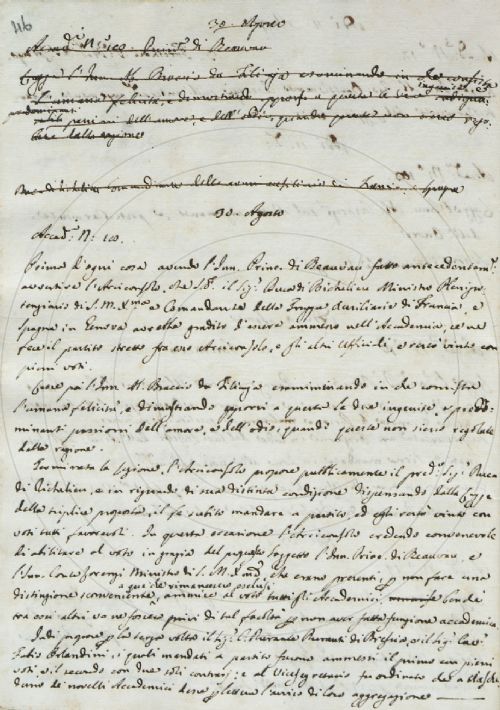 46
30. Agosto
Accad.ª N.° 120. di Beauvau
Lesse l'Inn. M. Baccio da Filicaja esaminando in che consista
l'umana felicità, e dimostrando opporsi a questa le due ingenite, e
predominanti passioni dell'amore, e dell'odio, quando queste non sieno rego-
late dalla ragione
Duca di Richelieu Comandante delle armi ausiliarie di Francia, e Spagna
30. Agosto
Accad.ª N.° 120.
Prima d'ogni cosa avendo l'Inn. Princ. di Beauvau fatto antecedentem.e
avvertire l'Arciconsolo, che S.E. il Sig.r Duca di Richelieu Ministro Plenipo-
tenziario di S. M. X.ma e Comandante della Truppa Ausiliaria di Francia, e
Spagna in Genova avrebbe gradito d'essere ammesso nell'Accademia, ce ne
fece il partito stretto fra esso Arciconsolo, e gli altri Ufficiali, e restò vinto con
pieni voti.
Lesse poi l'Inn. M. Baccio da Filicaja esaminando in che consista
l'umana felicità, e dimostrando opporsi a questa le due ingenite, e predo-
minanti passioni dell'amore, e dell'odio, quando queste non sieno regolate
dalla ragione.
Terminata la lezione, l'Arciconsolo propose pubblicamente il pred.º Sig.r Duca
di Richelieu, e in riguardo di sua distinta condizione dispensando dalla legge
della triplice proposta, il fe subito mandare a partito, ed egli restò vinto con
voti tutti favorevoli. In questa occasione l'Arciconsolo credendo convenevole
di abilitare al voto in grazia del Soggetto l'Inn. Princ. di Beauvau, e
l'Inn. Conte Lorenzi Ministro di S. M. X.ma, che erano presenti, p non fare una
distinzione sconveniente a quei che rimanevano esclusi, ammise al voto tutti gli Accademici, benchè
tra essi altri ve ne fossero privi di tal facoltà p non aver fatta funzione accademica
Indi propose p la terza volta il Sig.r C. Durante Duranti di Brescia, e il Sig.r Cav.
Fabio Orlandini, i quali mandati a partito furono ammessi il primo con pieni
voti, e il secondo con due soli contrarj: e al Vicesegretario fu ordinato di a ciasche-
duno de novelli Accademici dare p lettera l'avviso di loro aggregazione